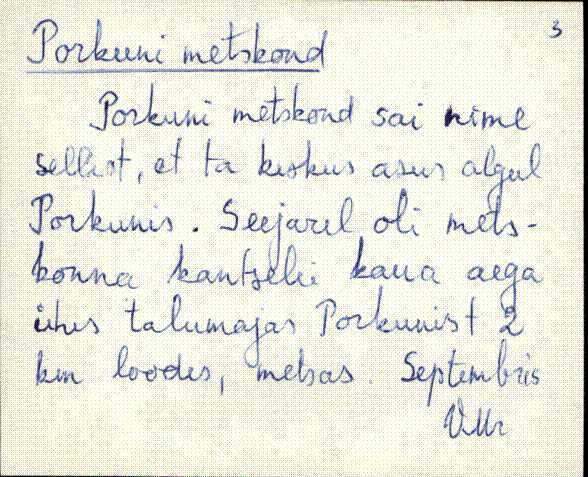 3
Porkuni metskond
Porkuni metskond sai nime
sellest, et ta keskus asus algul
Porkunis. Seejärel oli mets-
konna kantselei kaua aega
ühes talumajas Porkunist 2
km loodes, metsas. Septembris
VMr